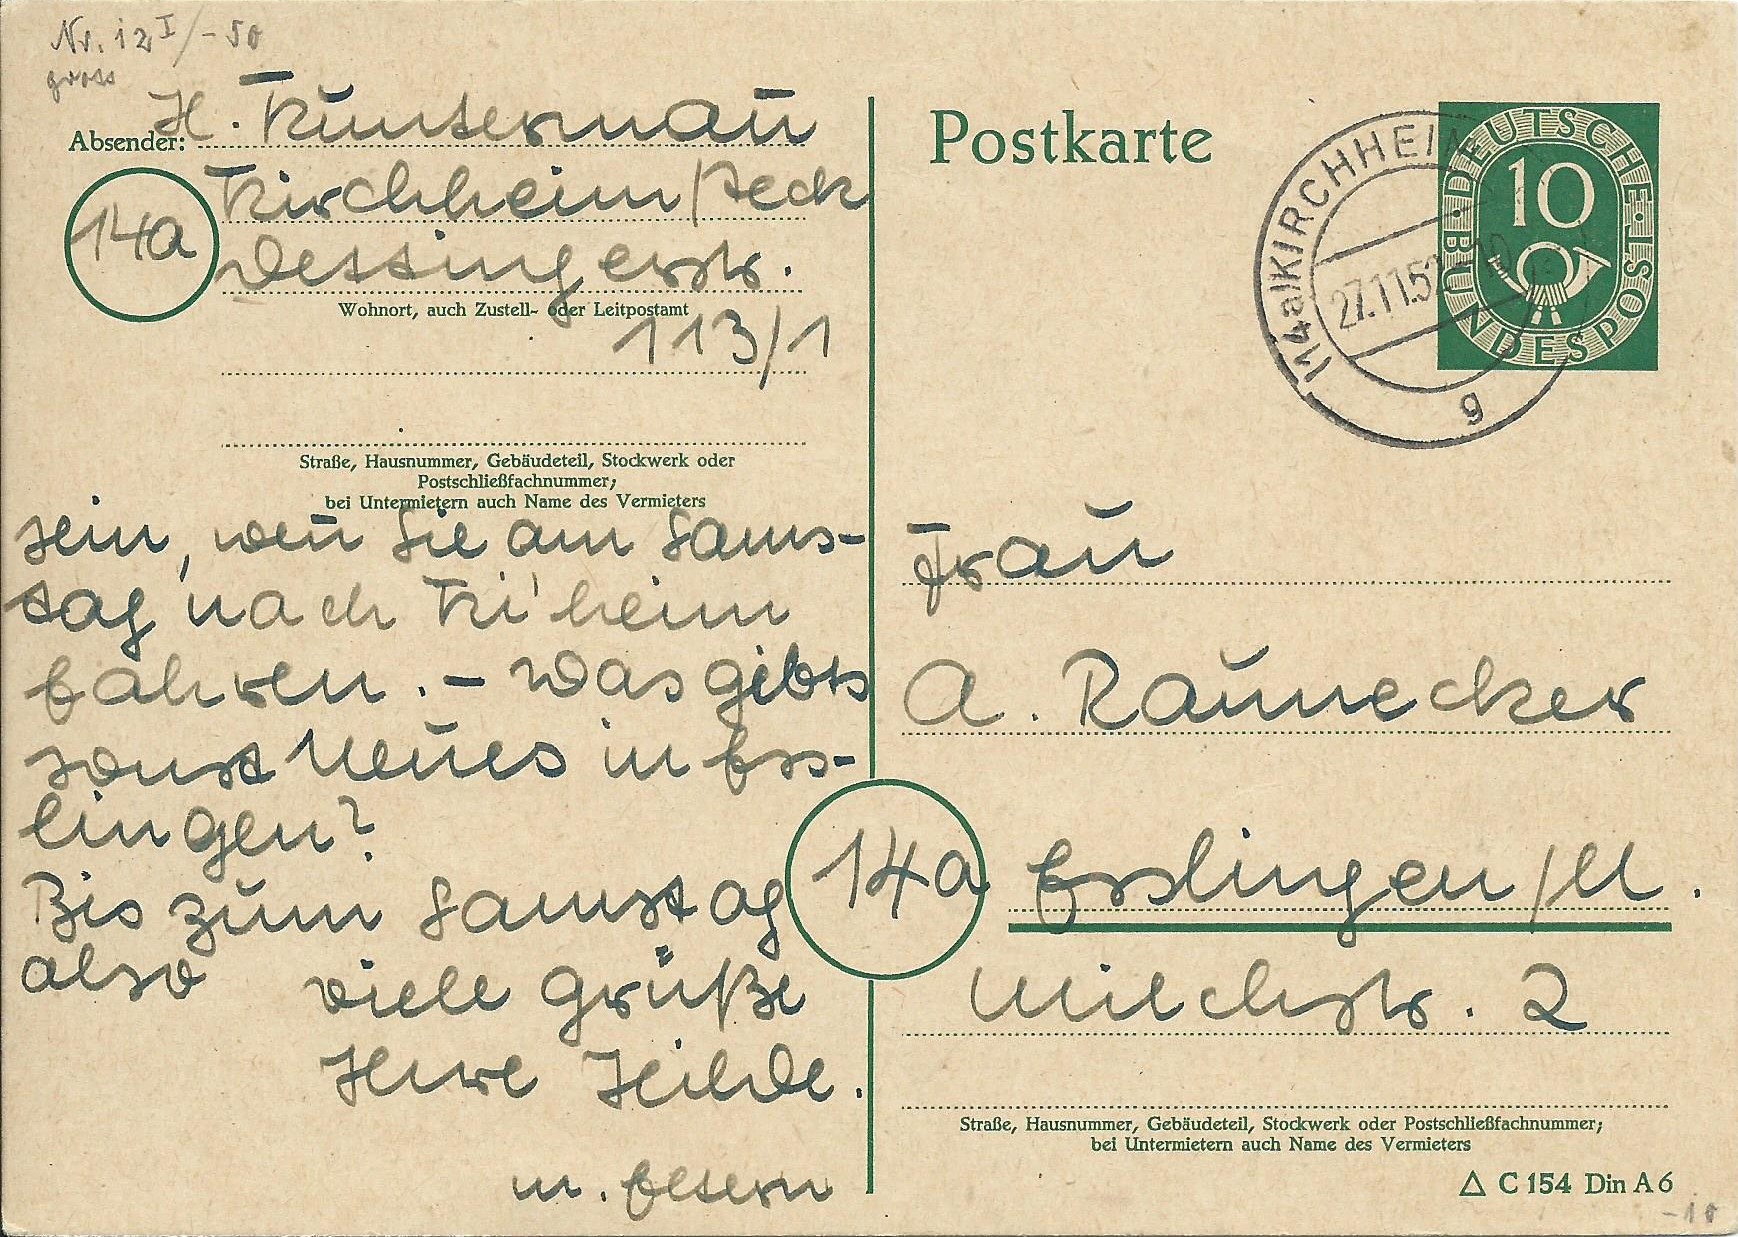 Nr. 12 I/-50
gross
Absender: H. Kunterman̄
Kirchheim/Teck
14a
Dettingerstr.
Wohnort, auch Zustell- oder Leitpostamt
113/1
Straße, Hausnummer, Gebäudeteil, Stockwerk oder
Postschließfachnummer;
bei Untermietern auch Name des Vermieters
sein, wen̄ Sie am Sams-
tag nach Ki'heim
fahren. - Was gibts
sonst Neues in Ess-
lingen?
Bis zum Samstag
also viele Grüße
Ihre Hilde.
m. Eltern
Postkarte
DEUTSCHE BUNDESPOST
10
(14a) KIRCHHEIM
27.11.52
g
Frau
A. Raunecker
14a Esslingen/N.
Milchstr. 2
Straße, Hausnummer, Gebäudeteil, Stockwerk oder Postschließfachnummer;
bei Untermietern auch Name des Vermieters
△ C 154 Din A 6
-10